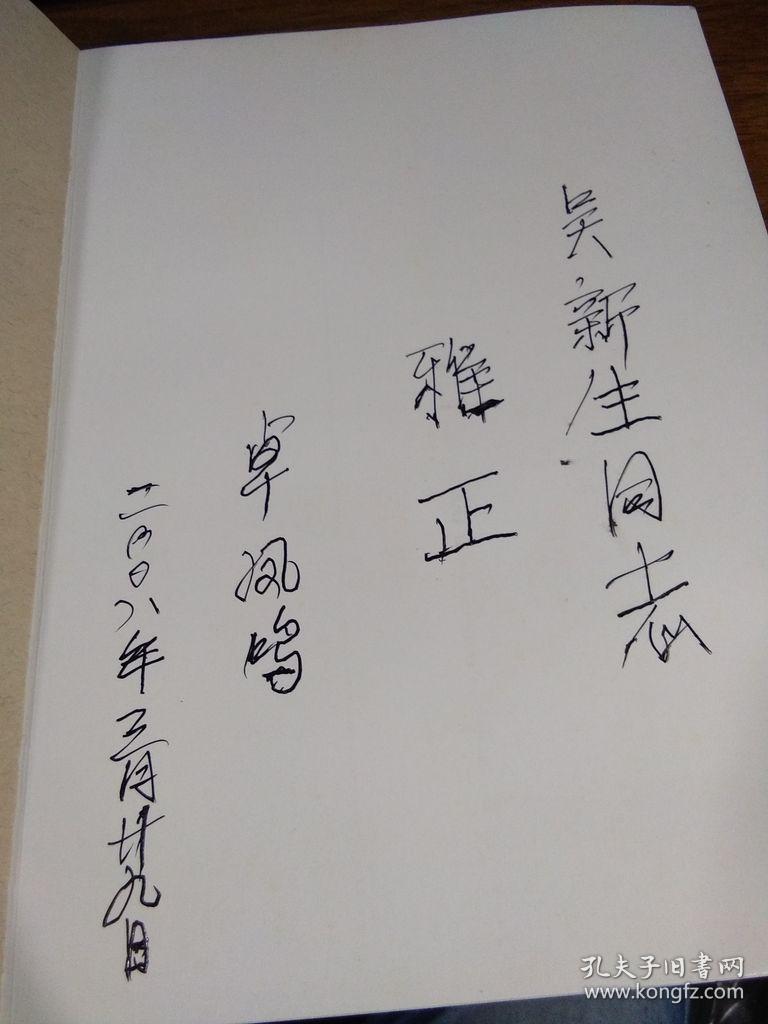 吴新生同志
雅正
卓凤鸣
二〇〇八年三月廿九日
孔夫子旧书网
www.kongfz.com